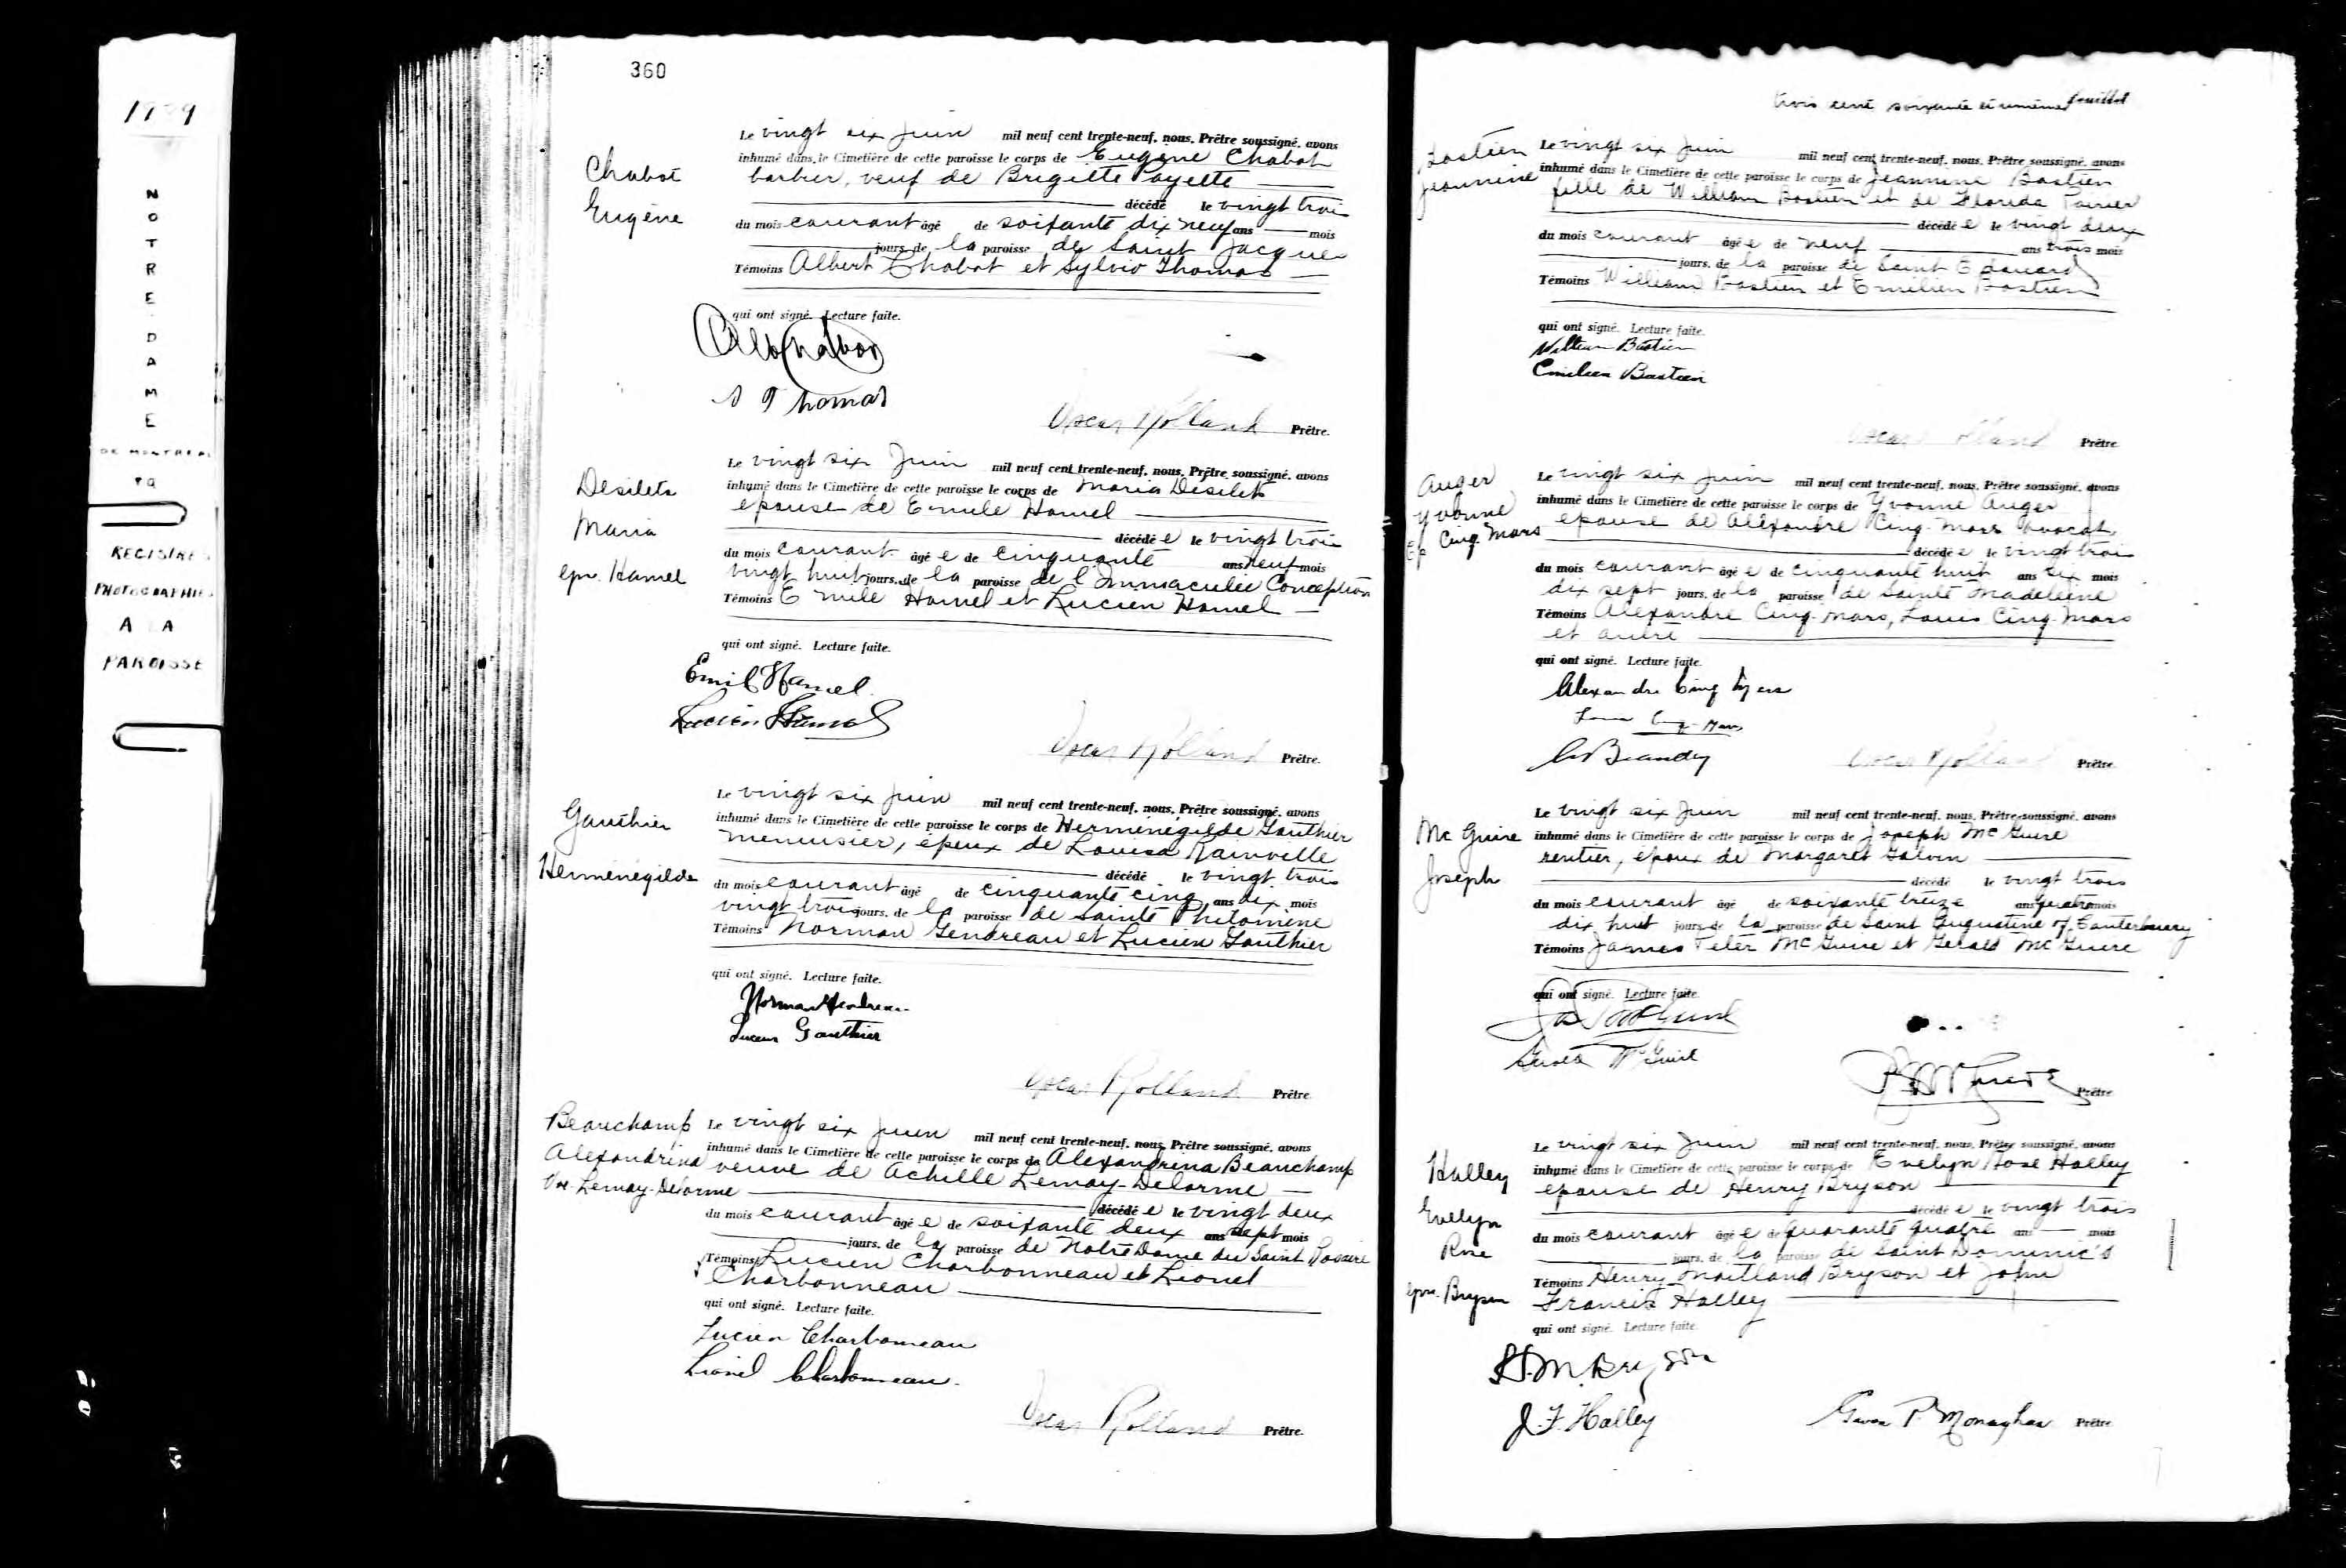 N
O
T
R
E
D
A
M
E
DE MONTREAL
REGISTRE
PHOTOGRAPHIE
A LA
PAROISSE
360
Chabot
Eugène
Le vingt six Juin mil neuf cent trente-neuf, nous, Prêtre soussigné, avons
inhumé dans le Cimetière de cette paroisse le corps de Eugène Chabot
barbier, veuf de Brigitte Payette
décédé le vingt trois
du mois courant âgé de soixante dix neuf ans mois
jours, de la paroisse de Saint Jacques
Témoins Albert Chabot et Sylvio Thomas
qui ont signé. Lecture faite.
Alb Chabot
S Thomas
Oscar Rolland Prêtre.
Desilets
Maria
épse. Hamel
Le vingt six Juin mil neuf cent trente-neuf, nous, Prêtre soussigné, avons
inhumé dans le Cimetière de cette paroisse le corps de Maria Desilets
épouse de Emile Hamel
décédé e le vingt trois
du mois courant âgé e de cinquante ans neuf mois
vingt huit jours, de la paroisse de l'Immaculée Conception
Témoins Emile Hamel et Lucien Hamel
qui ont signé. Lecture faite.
Emile Hamel
Lucien Hamel
Oscar Rolland Prêtre.
Gauthier
Herménégilde
Le vingt six Juin mil neuf cent trente-neuf, nous, Prêtre soussigné, avons
inhumé dans le Cimetière de cette paroisse le corps de Herménégilde Gauthier
menuisier, époux de Louisa Rainville
décédé le vingt trois
du mois courant âgé de cinquante cinq ans dix mois
vingt trois jours, de la paroisse de Sainte Philomène
Témoins Norman Gendreau et Lucien Gauthier
qui ont signé. Lecture faite.
Norman Gendreau
Lucien Gauthier
Oscar Rolland Prêtre
Beauchamp
Alexandrina
Vve Lemay-Delorme
Le vingt six Juin mil neuf cent trente-neuf, nous, Prêtre soussigné, avons
inhumé dans le Cimetière de cette paroisse le corps de Alexandrina Beauchamp
veuve de Achille Lemay-Delorme
décédé e le vingt deux
du mois courant âgé e de soixante deux ans sept mois
jours, de la paroisse de Notre Dame du Saint Rosaire
Témoins Lucien Charbonneau et Lionel
Charbonneau
qui ont signé. Lecture faite.
Lucien Charbonneau
Lionel Charbonneau
Oscar Rolland Prêtre.
trois cent soixante et unième feuillet
Bastien
Jeannine
Le vingt six Juin mil neuf cent trente-neuf, nous, Prêtre soussigné, avons
inhumé dans le Cimetière de cette paroisse le corps de Jeannine Bastien
fille de William Bastien et de Florida Poirier
décédé e le vingt deux
du mois courant âgé e de neuf ans trois mois
jours, de la paroisse de Saint Edouard
Témoins William Bastien et Emilien Bastien
qui ont signé. Lecture faite.
William Bastien
Emilien Bastien
Oscar Rolland Prêtre
Auger
Yvonne
Ep Cinq-Mars
Le vingt six Juin mil neuf cent trente-neuf, nous, Prêtre soussigné, avons
inhumé dans le Cimetière de cette paroisse le corps de Yvonne Auger
épouse de Alexandre Cinq-Mars avocat
décédé e le vingt trois
du mois courant âgé e de cinquante huit ans six mois
dix sept jours, de la paroisse de Sainte Madeleine
Témoins Alexandre Cinq-Mars, Louis Cinq-Mars
et autre
qui ont signé. Lecture faite.
Alexandre Cinq Mars
Louis Cinq-Mars
Beaudry
Oscar Rolland Prêtre
Mc Guire
Joseph
Le vingt six Juin mil neuf cent trente-neuf, nous, Prêtre soussigné, avons
inhumé dans le Cimetière de cette paroisse le corps de Joseph McGuire
rentier, époux de Margaret Galvin
décédé le vingt trois
du mois courant âgé de soixante treize ans quatre mois
dix huit jours, de la paroisse de Saint Augustine of Canterbury
Témoins James Peter McGuire et Gerald McGuire
qui ont signé. Lecture faite.
Gerald McGuire
Prêtre
Halley
Evelyn
Rose
épse. Bryson
Le vingt six Juin mil neuf cent trente-neuf, nous, Prêtre soussigné, avons
inhumé dans le Cimetière de cette paroisse le corps de Evelyn Rose Halley
épouse de Henry Bryson
décédé e le vingt trois
du mois courant âgé e de quarante quatre ans mois
jours, de la paroisse de Saint Dominic's
Témoins Henry Maitland Bryson et John
Francis Halley
qui ont signé. Lecture faite.
H.M. Bryson
J. F. Halley
P. Monaghan Prêtre